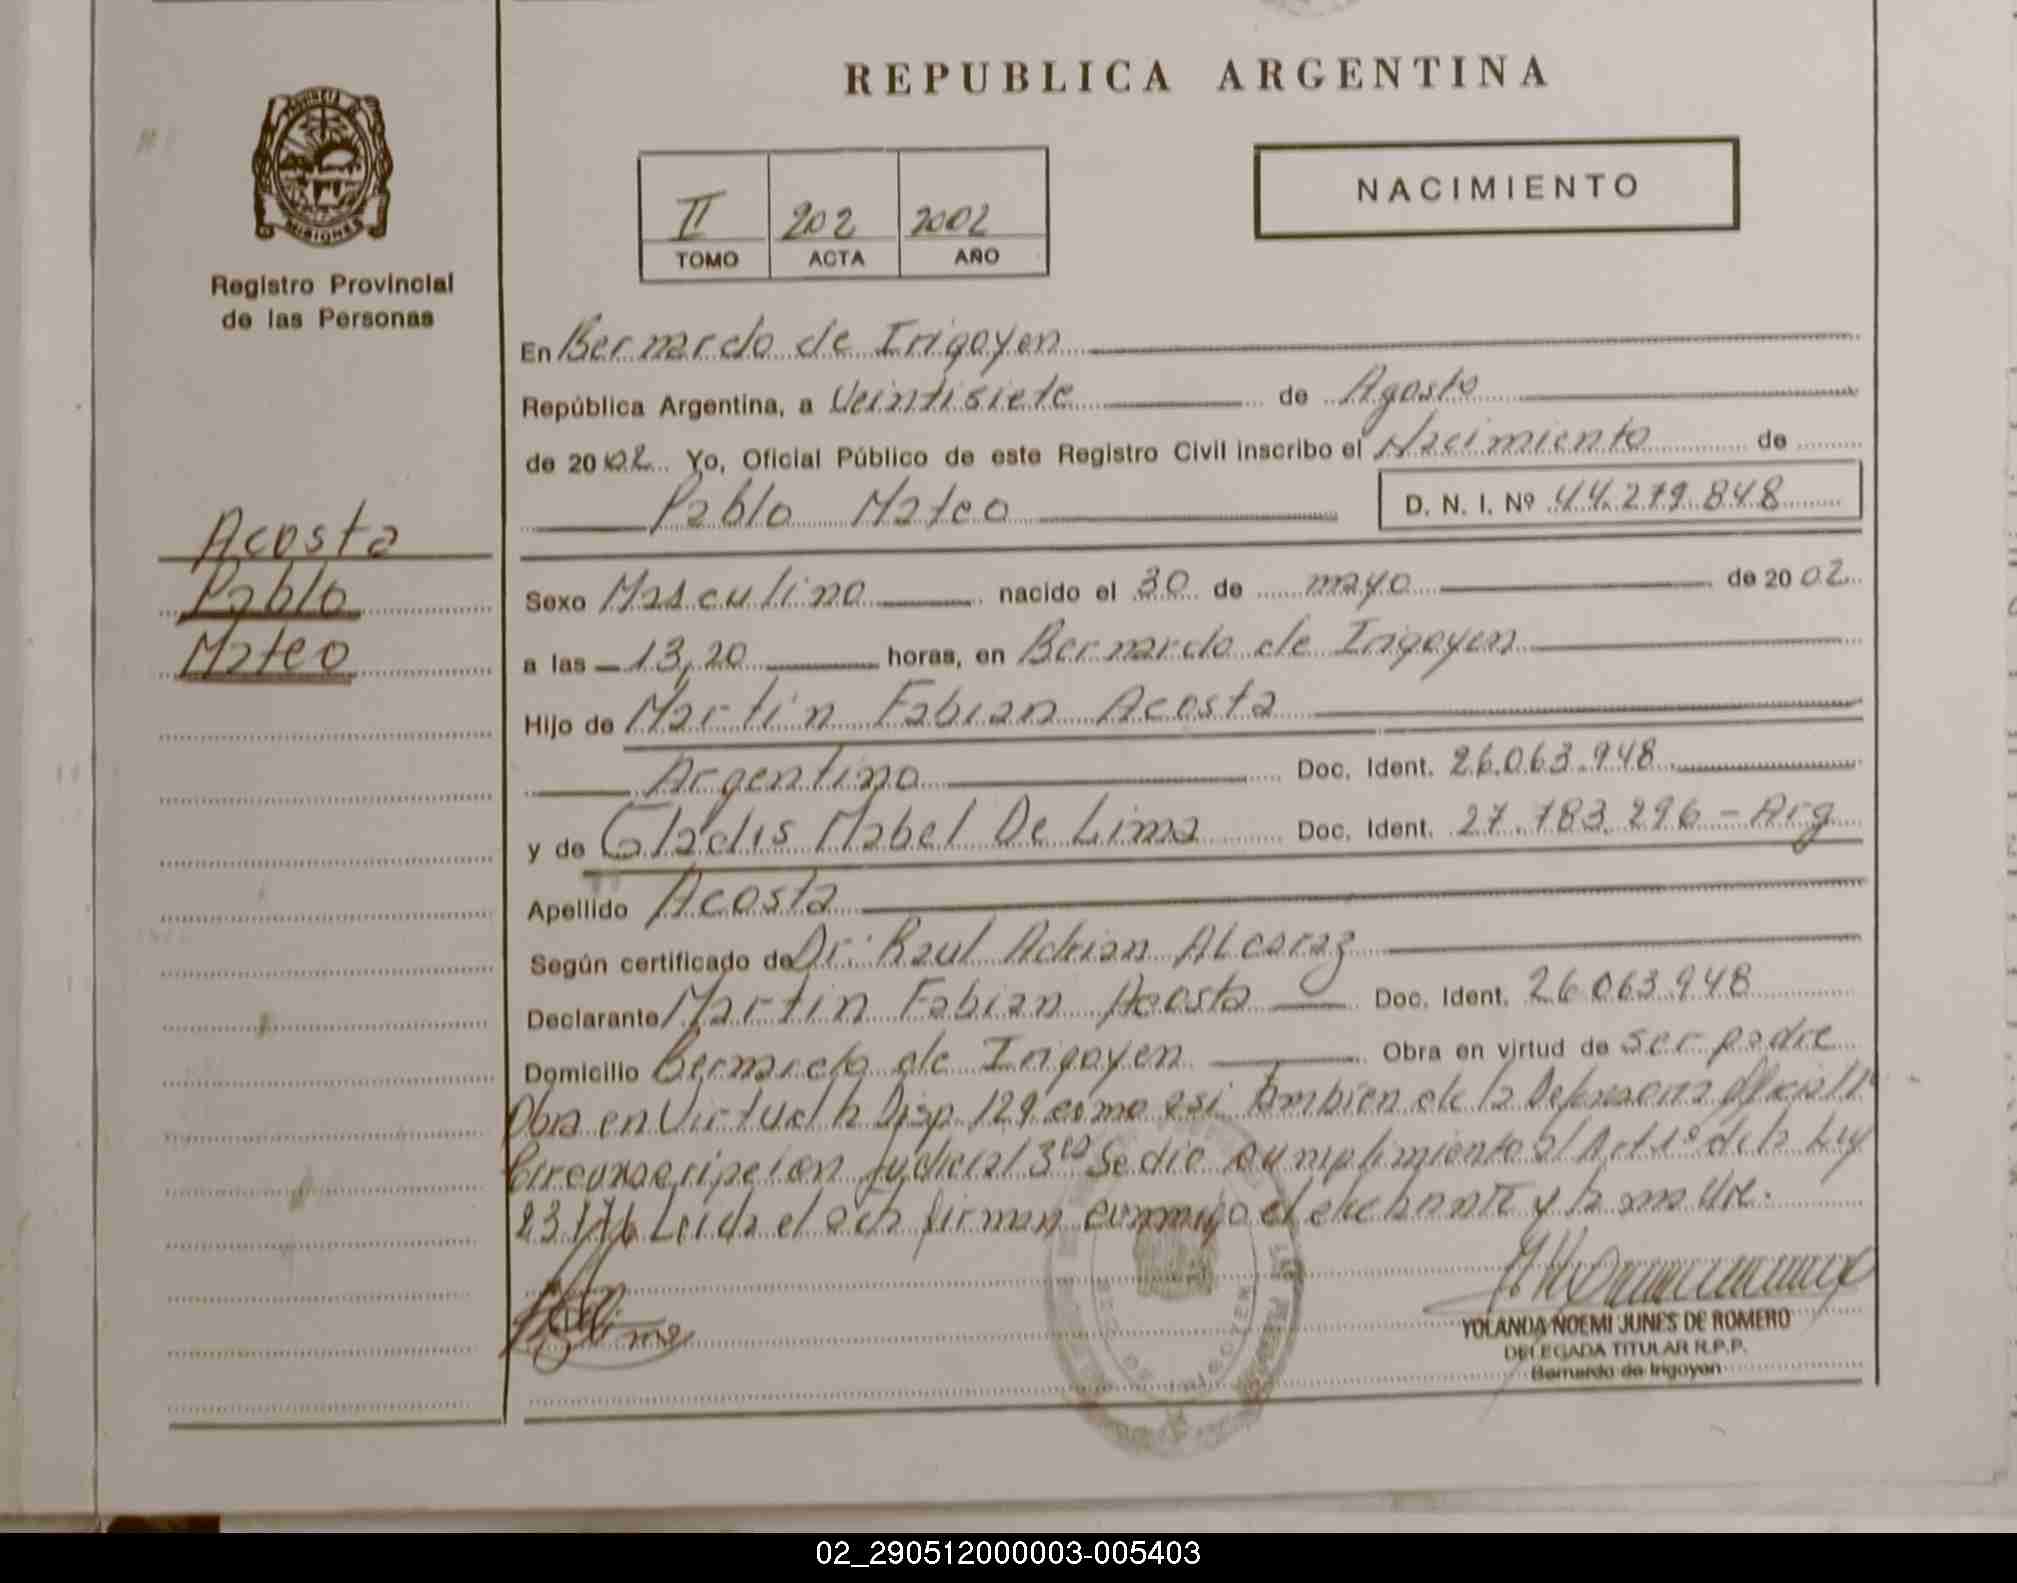 REPUBLICA ARGENTINA
PROVINCIA
MISIONES
Registro Provincial
de las Personas
II 202 2002
TOMO ACTA AÑO
NACIMIENTO
En Bernardo de Irigoyen
República Argentina, a Veintisiete de Agosto
de 2002 Yo, Oficial Público de este Registro Civil inscribo el Nacimiento de
Pablo Mateo D. N. I. Nº 44.279.848
Acosta
Pablo
Mateo
Sexo Masculino nacido el 30 de mayo de 2002
a las 13,20 horas, en Bernardo de Irigoyen
Hijo de Martin Fabian Acosta
Argentino Doc. Ident. 26.063.948
y de Gladis Mabel De Lima Doc. Ident. 27.783.296 - Arg
Apellido Acosta
Según certificado de Dr: Raul Adrian Alcaraz
Declarante Martin Fabian Acosta Doc. Ident. 26.063.948
Domicilio Bernardo de Irigoyen Obra en virtud de ser padre
Obra en Virtud la Disp. 129 como asi tambien de la Defensoria Oficial
Circunscripcion Judicial 3ra Se dio cumplimiento al Art 1º de la Ley
23.776 Leida el acta firman conmigo el declarante y la madre.
YOLANDA NOEMI JUNES DE ROMERO
DELEGADA TITULAR R.P.P.
Bernardo de Irigoyen
02_290512000003-005403